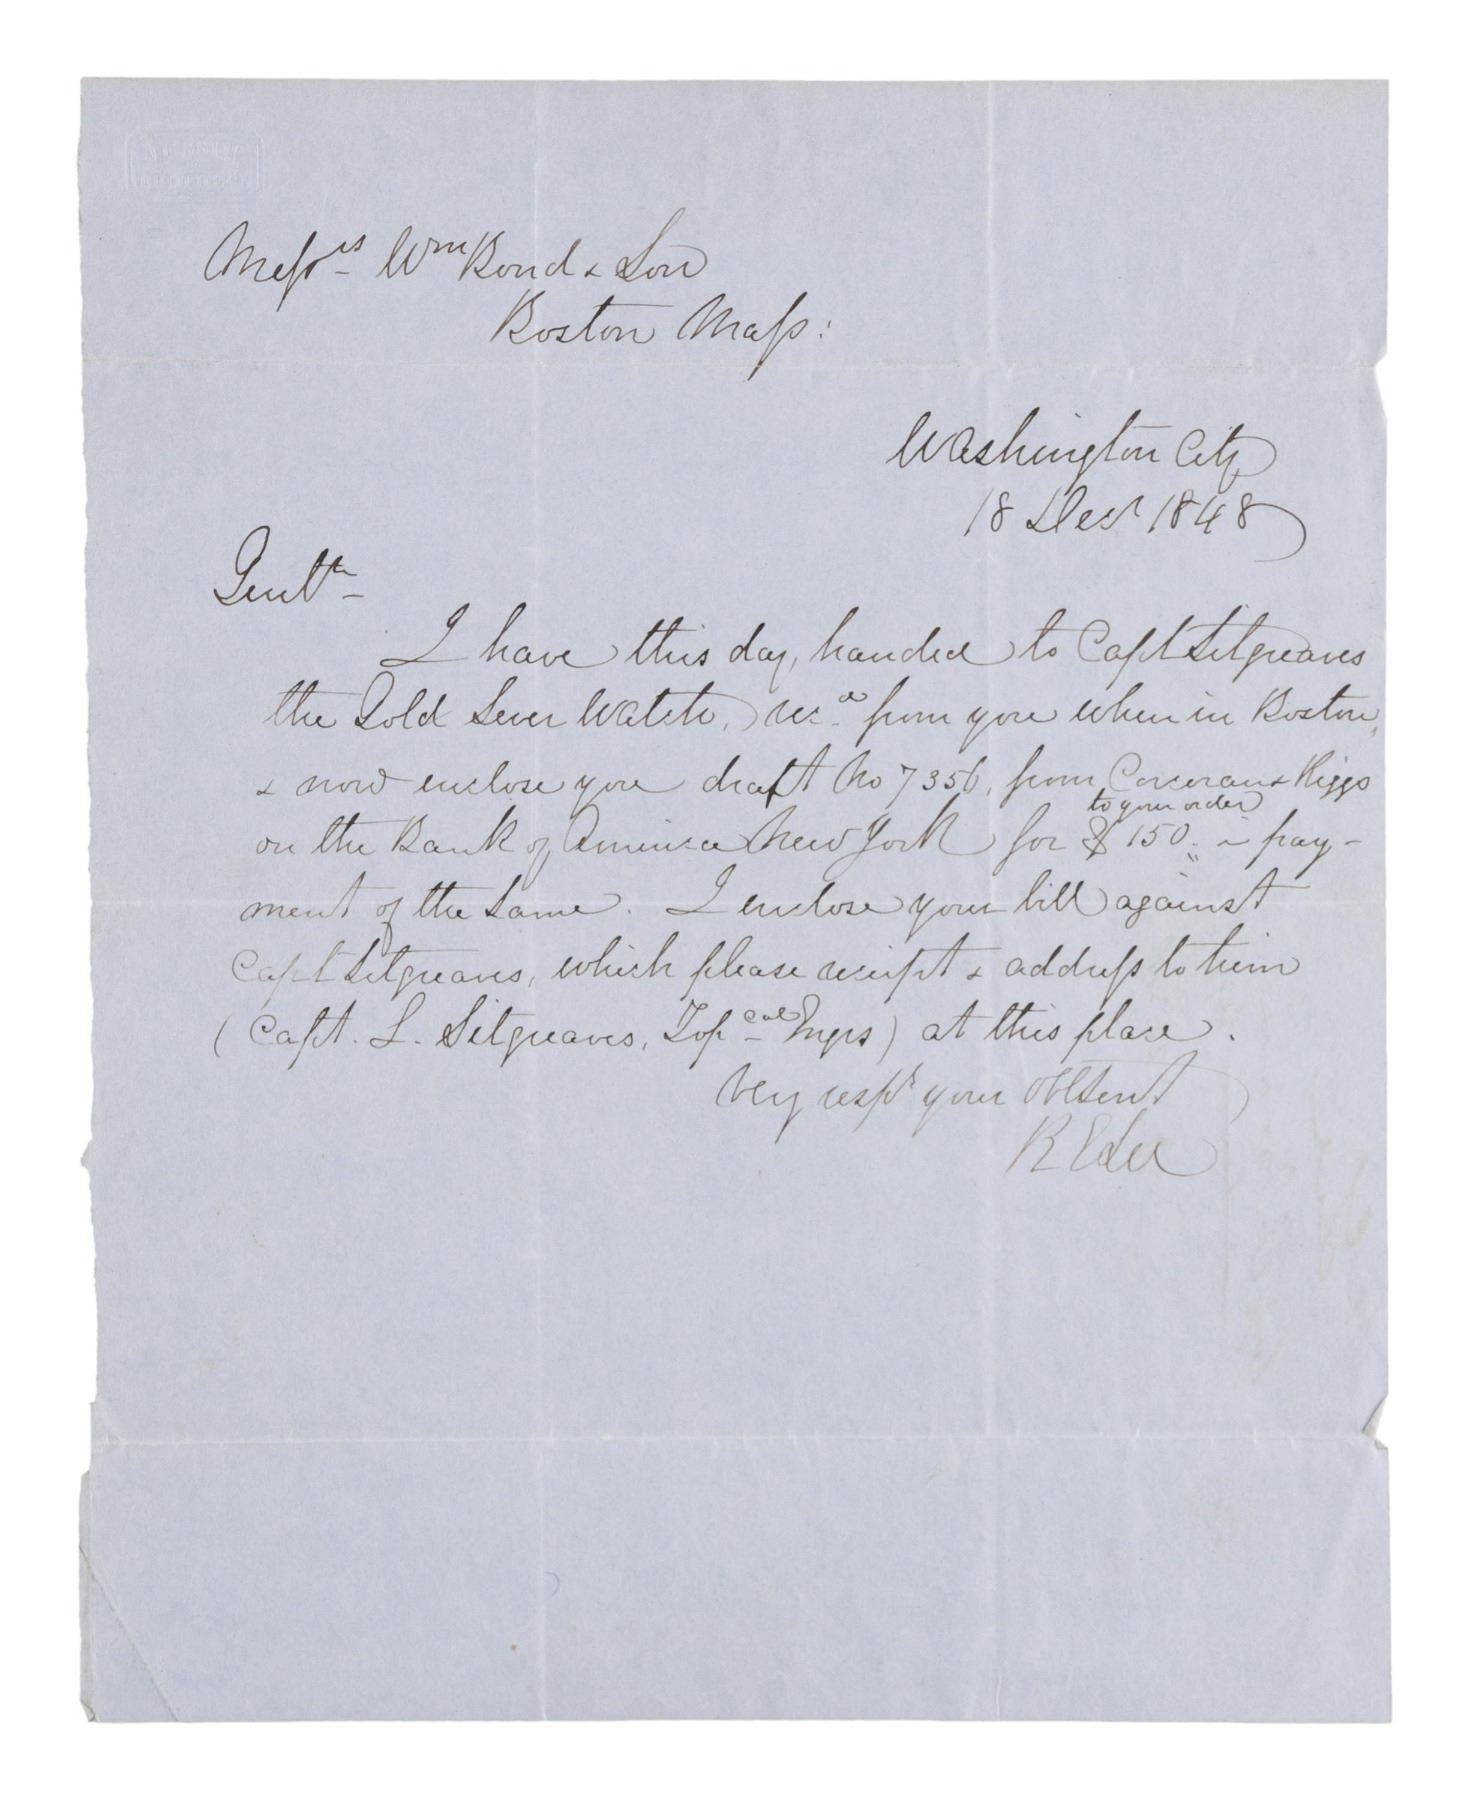 Messrs Wm Bond & Son
Boston Mass:
Washington City
18 Decr 1848
Gentln
I have this day, handed to Capt Sitgreaves
the Gold Lever Watch, recd from you when in Boston,
& now enclose you draft No 7356, from Corcoran & Riggs
to your order
on the Bank of America New York for $150 in pay-
ment of the same. I enclose your bill against
Capt Sitgreaves, which please receipt & address to him
(Capt. L. Sitgreaves, Topcal Engrs) at this place.
Very respy your obt Servt
R E Lee